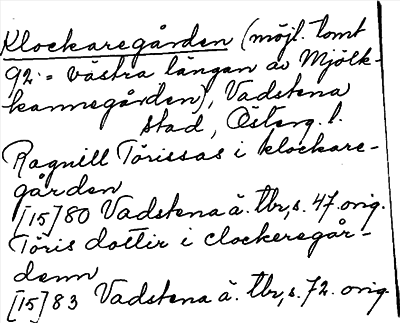 Klockaregården (möjl. tomt
92 = västra längan av Mjölk-
kannegården), Vadstena
stad, Österg. l.
Ragnill Törissas i klockare-
gården
[15]80 Vadstena ä. tbr, s. 47. orig.
Töris dottir i clockeregår-
denn
[15]83 Vadstena ä. tbr, s. 72. orig.